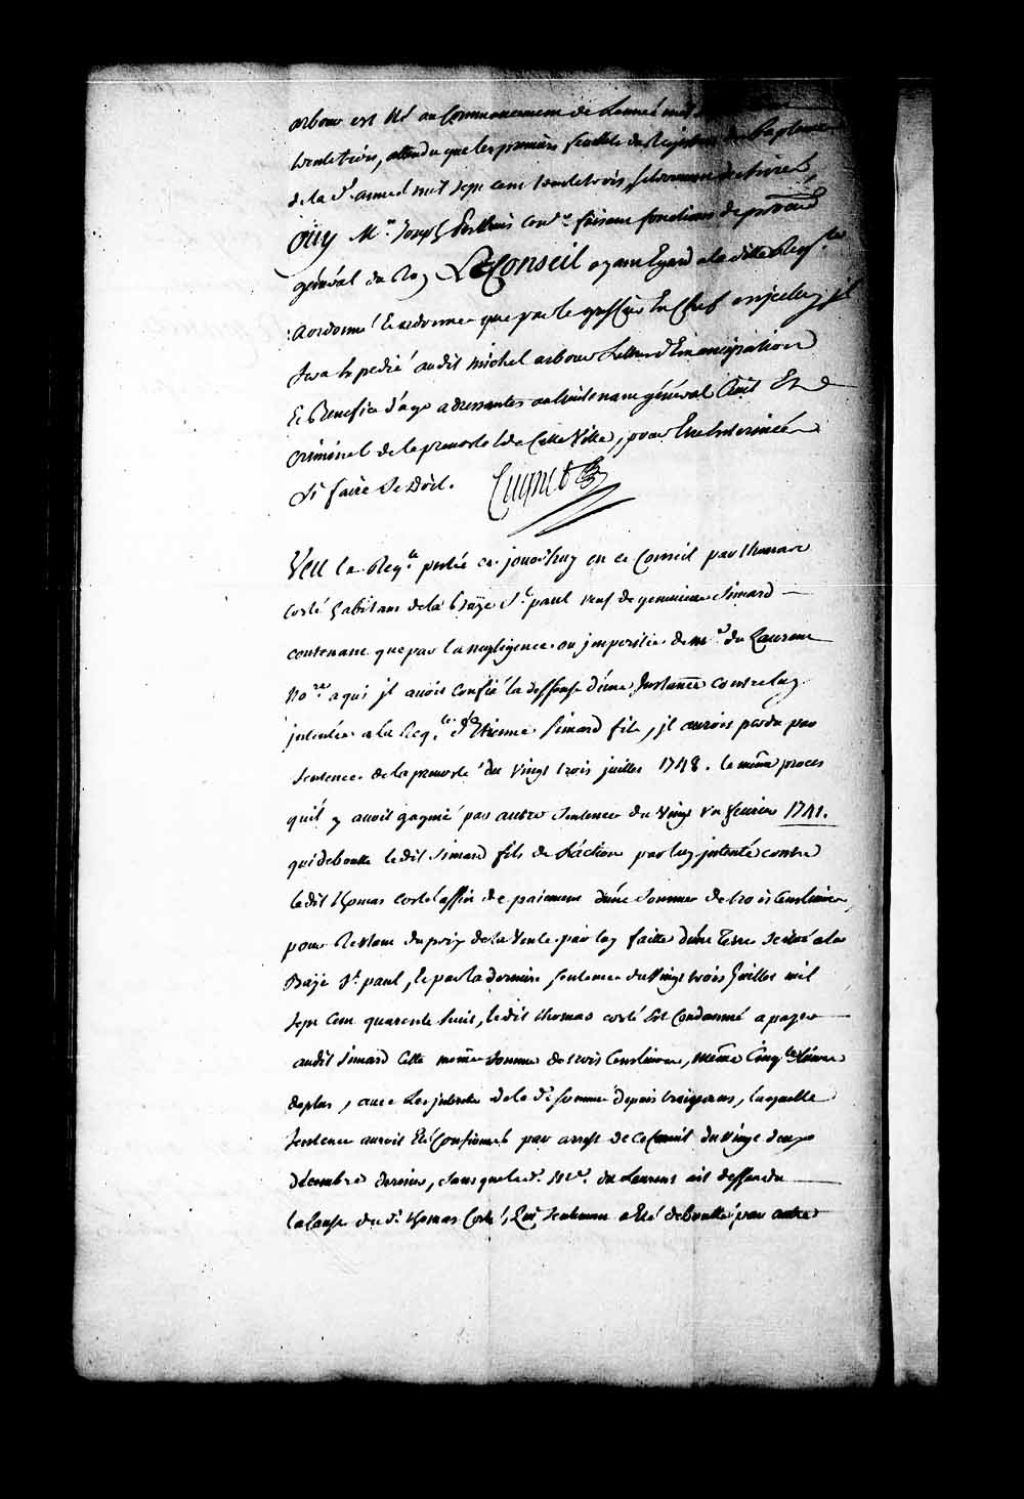 arbour est Né au Commancement de Lannée mil
trentetrois, attendu que les premiers feuillets du Registre des Baptemes
de la de. année mil sept cent trentetrois, se trouvent dechirés,
Ouy Me. Joseph Perthuis conr. faisant fonctions de procureur
général du Roy Le Conseil ayant Egard a la ditte Reqte.
a ordonné Et ordonne que par le greffier En Chef en jceluy jl
sera Expedié audit Michel arbour Lettres d'Emancipation
Et Benefice d'age adressantes au lieutenant général Civil Et
criminel de la prevosté de Cette Ville, pour Etre Enterinées
Si faire Se Doit. Cugnet
Veu la Reqte. préstée ce jourd'huy en ce Conseil par thomas
costé habitant de la Baÿe St. paul veuf de genevieve Simard
contenant que par la negligence ou jmperitie de me. du Laurent
Nore. a qui jl avoit confié la deffense d'une Jnstance contre luy
jntentée a la Reqte. d'Etienne Simard fils, jl auroit perdu par
sentence de la prevosté du vingt trois juillet 1748. le même proces
qu'il y avoit gagné par autre Sentence du vingt un fevrier 1741.
qui deboute ledit Simard fils de L'action par luy jntenté contre
ledit thomas costé affin de paiement d'une Somme de trois Cent livres,
pour Restant du prix de la Vente par luy faitte d'une terre scituée a la
Baÿe St. paul, Et par la derniere sentence du Vingt trois Juillet mil
Sept Cent quarente huit, ledit thomas costé Est Condamné a payer
audit Simard Cette même Somme de trois Cent livres, même Cinqte. livres
de plus, avec Les jnterets de la de. somme depuis trois ans, laquelle
Sentence auroit Eté Confirmée par arrest de ce Conseil du vingt deux
décembre dernier, sans que led. Me. du Laurent ait deffendu
la Cause du d. thomas Costé, qui seulement a Eté debouté par autre